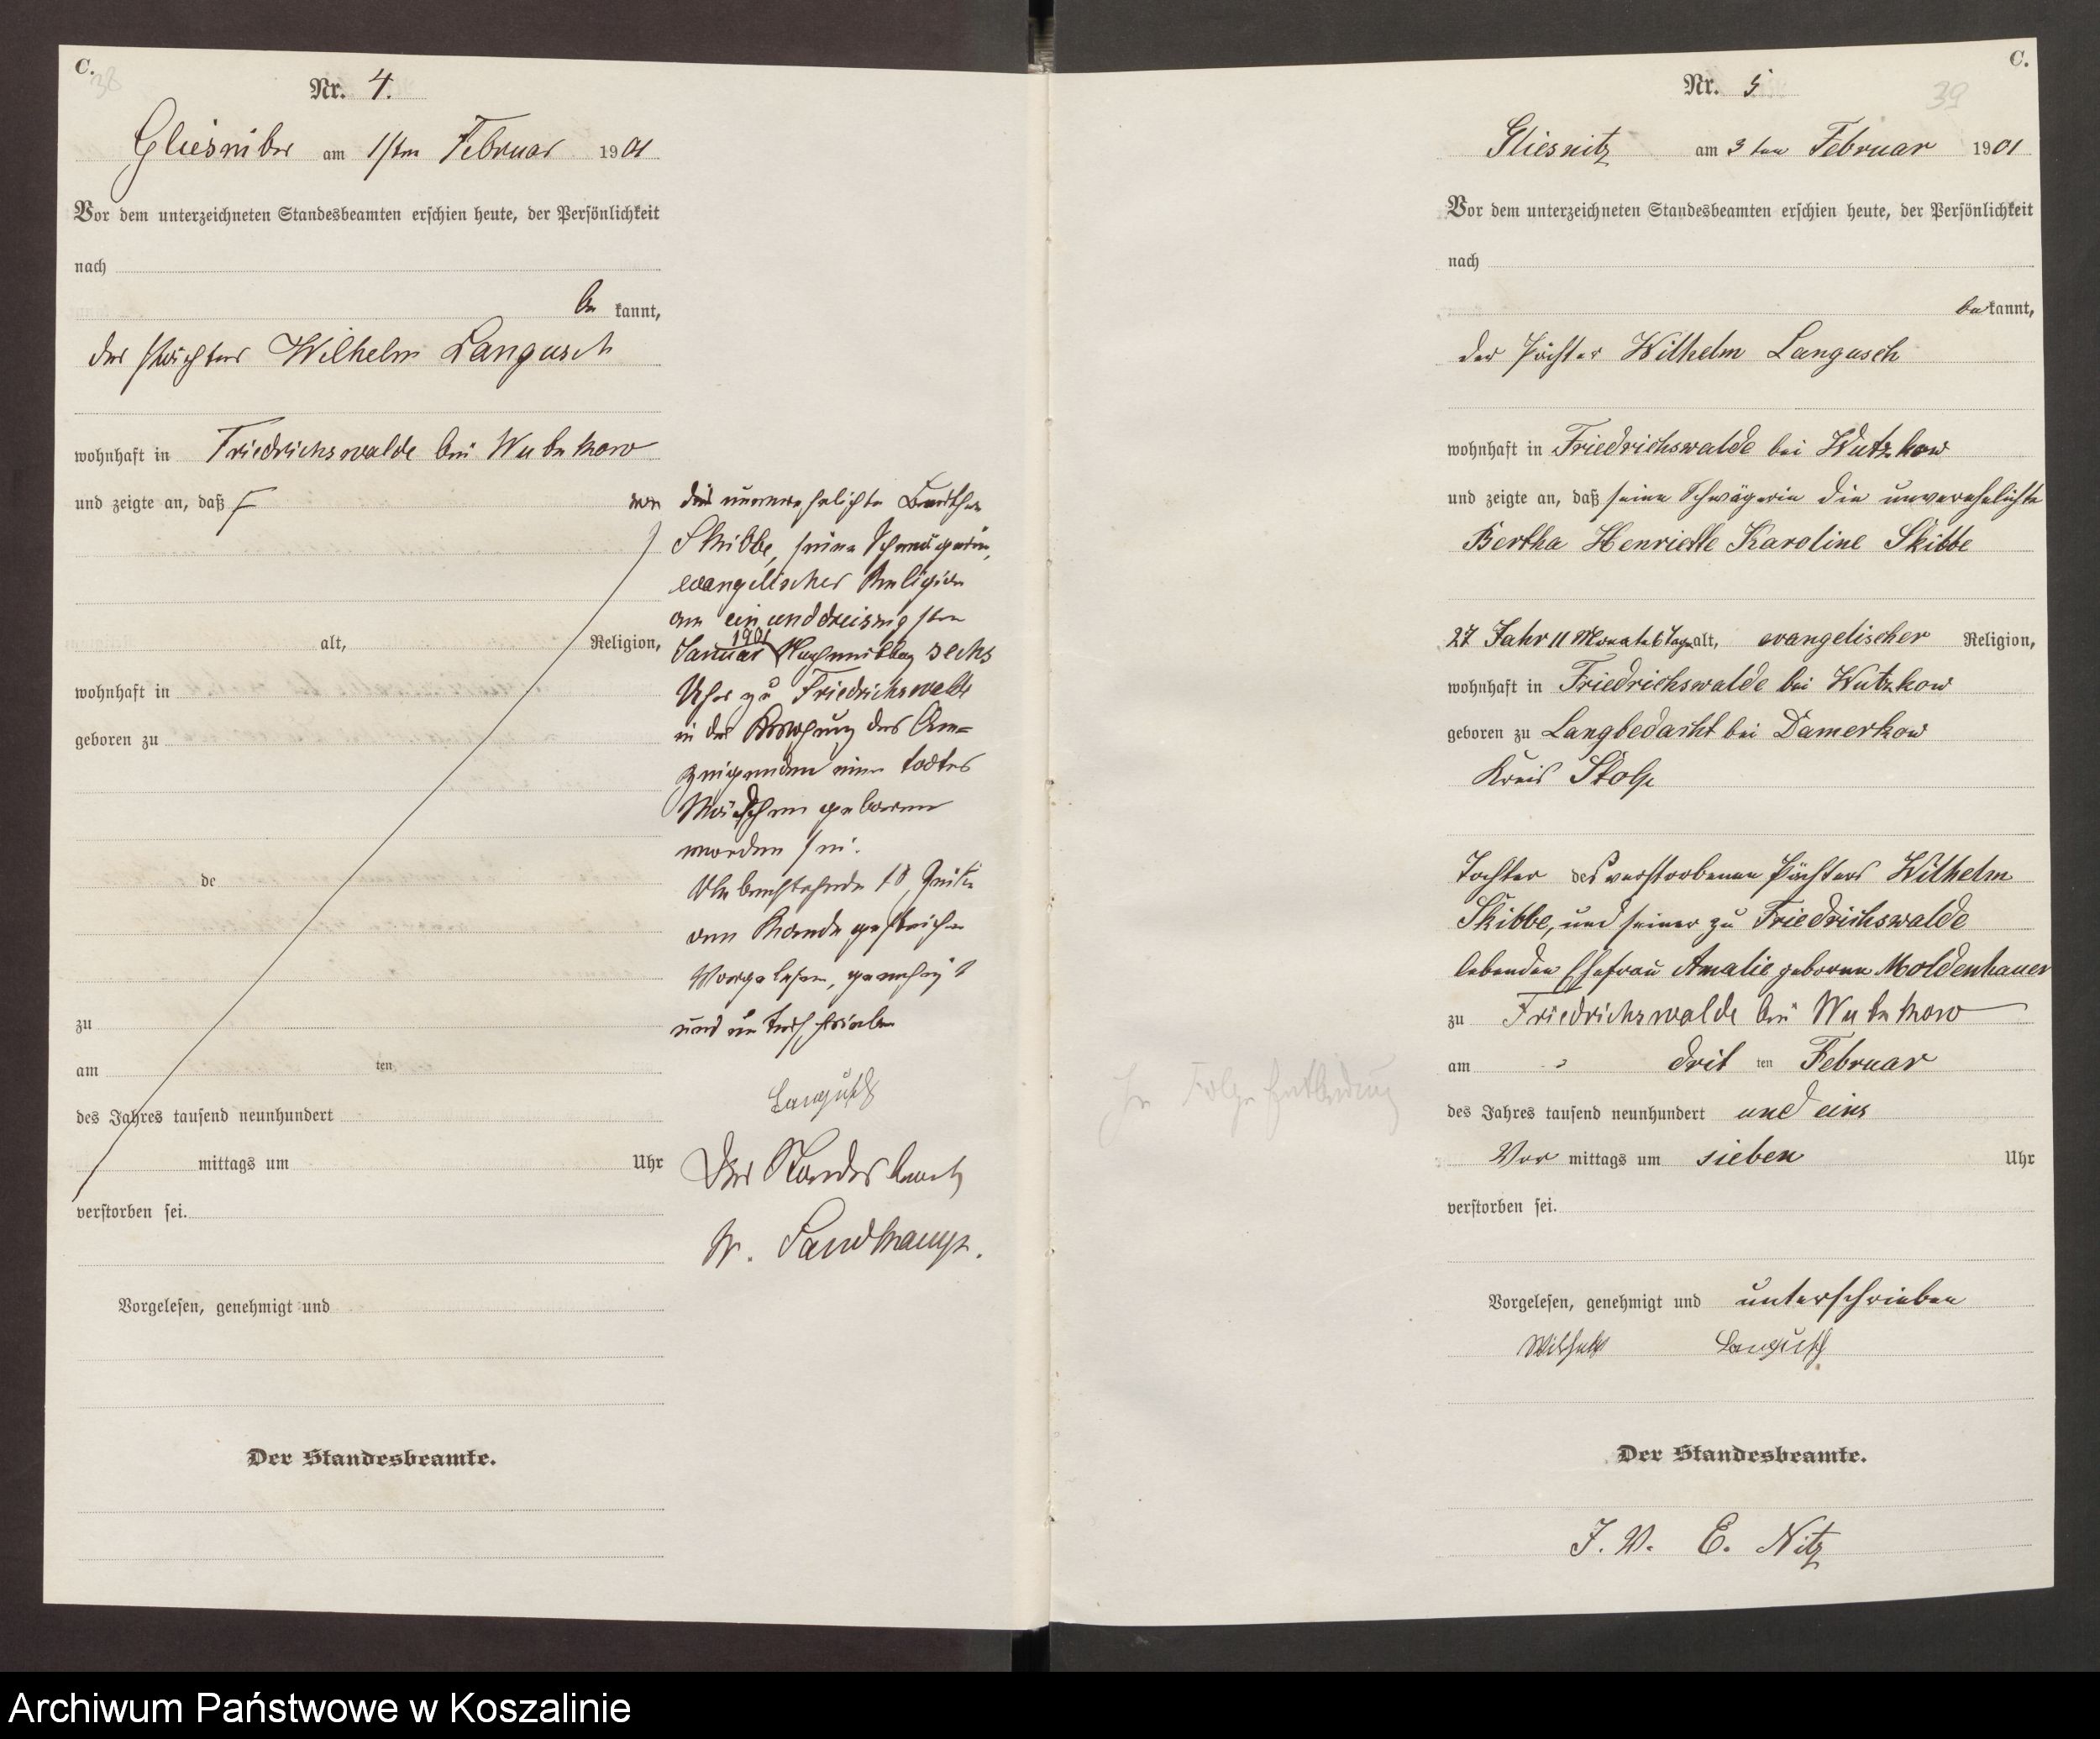 C.
38
Nr. 4.
Gliesnitz am 1sten Februar 1901
Vor dem unterzeichneten Standesbeamten erschien heute, der Persönlichkeit
nach
be kannt,
der Pächter Wilhelm Langusch
wohnhaft in Friedrichswalde bei Wutzkow
und zeigte an, daß von
alt, Religion,
wohnhaft in
geboren zu
de
zu
am ten
des Jahres tausend neunhundert
mittags um Uhr
verstorben sei.
Vorgelesen, genehmigt und
Der Standesbeamte.
der unverehelichte Bertha
Skibbe, seine Schwägerin,
evangelischer Religion
am einunddreissigsten
Januar 1901 Nachmittag sechs
Uhr zu Friedrichswalde
in der Wohnung des An=
zeigenden ein todtes
Mädchen geboren
worden sei.
Vorgelesen, genehmigt
und unterschrieben
Langusch
Der Standesbeamte
W. Sandkamp.
C.
39
Nr. 5
Gliesnitz am 3ten Februar 1901
Vor dem unterzeichneten Standesbeamten erschien heute, der Persönlichkeit
nach
bekannt,
der Pächter Wilhelm Langusch
wohnhaft in Friedrichswalde bei Wutzkow
und zeigte an, daß seine Schwägerin die unverehelichte
Bertha Henriette Karoline Skibbe
27 Jahr 11 Monate 6 Tage alt, evangelischer Religion,
wohnhaft in Friedrichswalde bei Wutzkow
geboren zu Langbedacht bei Damerkow
Kreis Stolp
Tochter des verstorbenen Pächters Wilhelm
Skibbe, und seiner zu Friedrichswalde
lebenden Ehefrau Amalie geborne Moldenhauer
zu Friedrichswalde bei Wutzkow
am drit ten Februar
des Jahres tausend neunhundert und eins
Vor mittags um sieben Uhr
verstorben sei.
Vorgelesen, genehmigt und unterschrieben
Wilhelm Langusch
Der Standesbeamte.
J. V. E. Nitz
In Folge Entbindung
Archiwum Państwowe w Koszalinie